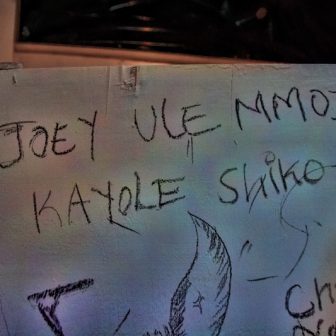 JOEY ULE MMOJ
KAYOLE Shiko
I
Ch